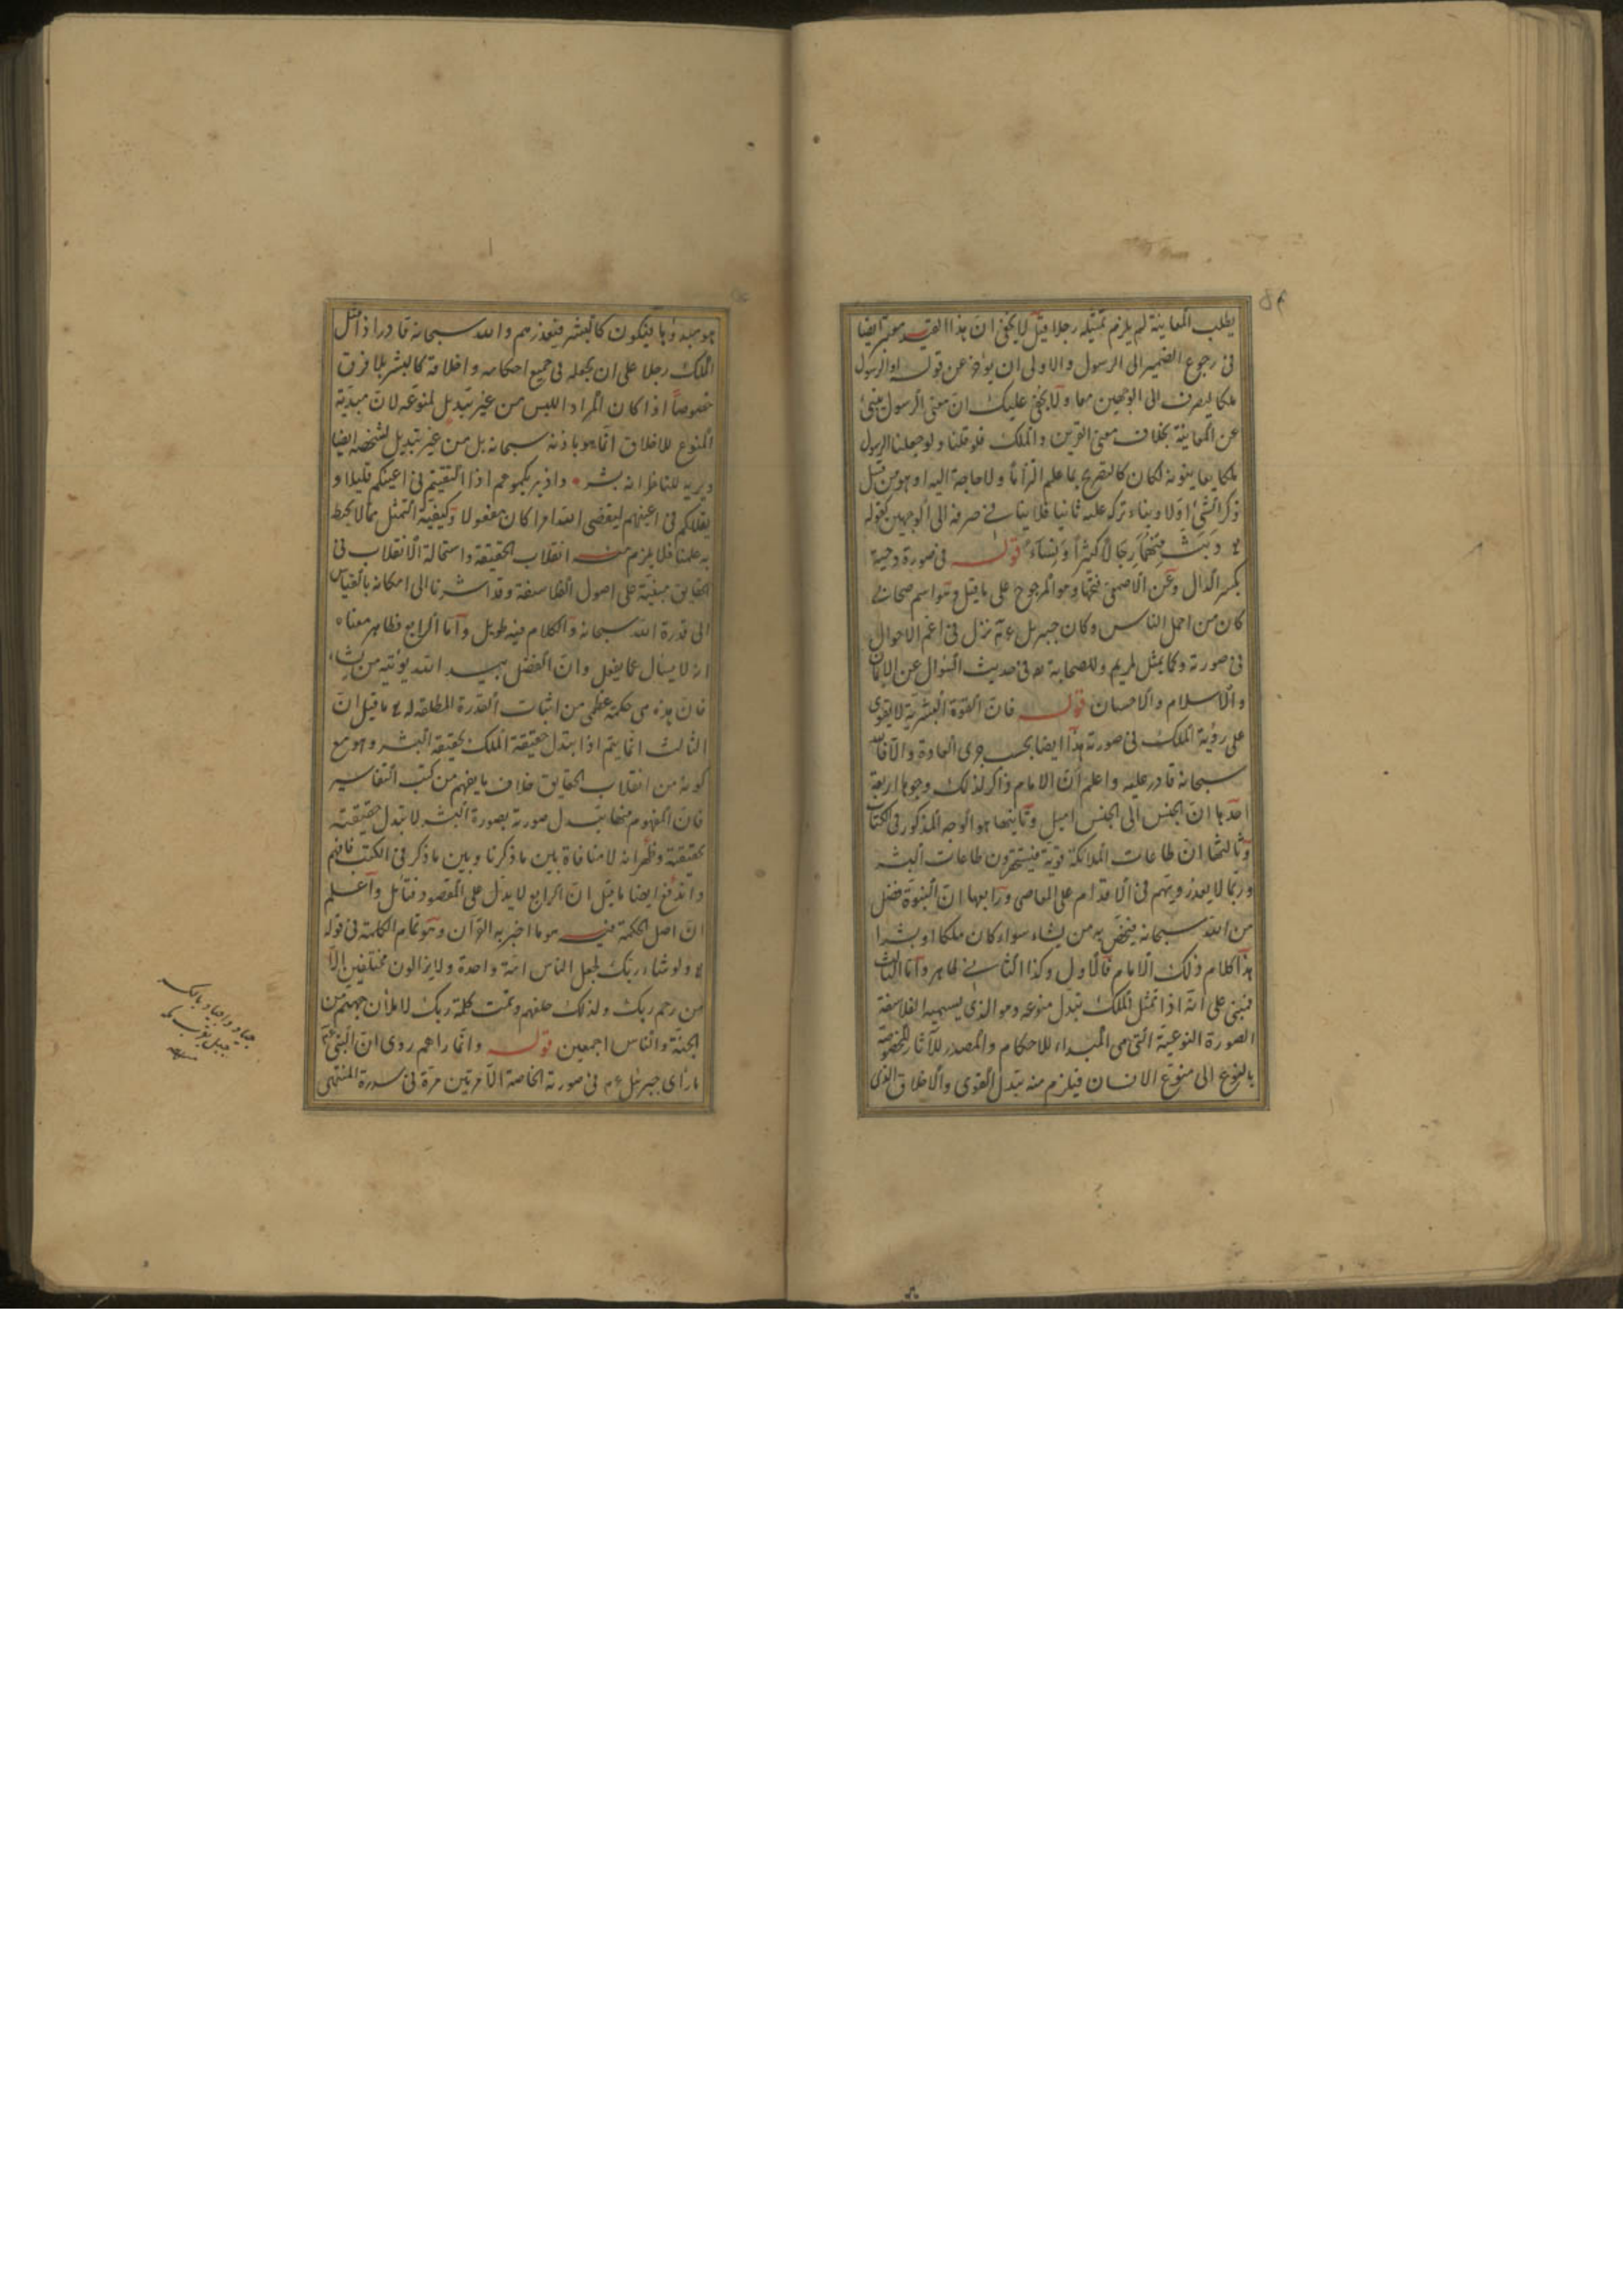 يطلب المعاينة لم يلزم تمثيله رجلا قيل لا يخفى ان هذا القيد معتبر ايضا
فى رجوع الضمير الى الرسول والاولى ان يؤخر عن قوله او الرسول
ملكا ليصرف الى الوجهين معا ولا يخفى عليك ان معنى الرسول مبنئ
عن المعاينة بخلاف معنى القرين والملك فلو قلنا ولو جعلنا الرسول
ملكا يعاينونه لكان كالتصريح بما علم التزاما ولا حاجة اليه او هو من قبيل
ذكر الشئ اولا وبناء تركه عليه ثانيا فلا ينافى صرفه الى الوجهين كقوله
تع وَبَثَّ مِنْهُمَا رِجَالاً كَثِيراً وَنِسَاءً قوله فى صورة دحية
بكسر الدال وعن الاصمعى فتحها وهو المرجوح على ما قيل وهو اسم صحابى
كان من اجمل الناس وكان جبريل ع م ينزل فى اعم الاحوال
فى صورته وكما يمثل لمريم وللصحابة رض فى حديث السؤال عن الايمان
والاسلام والاحسان قوله فان القوة البشرية لا يقوى
على رؤية الملك فى صورته هذا ايضا بحسب جرى العادة والا فالله
سبحانه قادر عليه واعلم ان الامام ذاكر لذلك وجوها اربعة
احدها ان الجنس الى الجنس اميل وثانيها هو الوجه المذكور فى الكتاب
وثالثها ان طاعات الملائكة قوية فيستحقرون طاعات البشر
وربما لا يعذرونهم فى الاقدام على المعاصى ورابعها ان النبوة فضل
من الله سبحانه فيختص به من يشاء سواء كان ملكا او بشرا
هذا كلام ذلك الامام فالاول وكذا الثانى ظاهر واما الثالث
فمبنى على انه اذا تمثل الملك تبدل منوعه وهو الذى يسميه الفلاسفة
الصورة النوعية التى هى المبداء للاحكام والمصدر للآثار المخصوصة
بالنوع الى منوع الانسان فيلزم منه تبدل القوى والاخلاق الذى
هو مبدؤها فيكون كالبشر فيعذرهم والله سبحانه قادر اذا مثل
الملك رجلا على ان يجعله فى جميع احكامه واخلاقه كالبشر بلا فرق
خصوصاً اذا كان المراد اللبس من غير تبديل لمنوعه لان مبدئية
المنوع للاخلاق انما هو باذنه سبحانه بل من غير تبديل لشخصه ايضا
ويريه للناظر انه بشر واذ يريكموهم اذا التقيتم فى اعينكم قليلا و
يقللكم فى اعينهم ليقضى الله امرا كان مفعولا وكيفية التمثل مما لا يحيط
به علمنا فلا يلزم منه انقلاب الحقيقة واستحالة الانقلاب فى
الحقايق مبنيّة على اصول الفلاسفة وقد اشرنا الى امكانه بالقياس
الى قدرة الله سبحانه والكلام فيه طويل واما الرابع فظاهر معناه
انه لا يسأل عما يفعل وان الفضل بيد الله يؤتيه من يشاء
فان هذه هى حكمة عظمى من اثبات القدرة المطلقة له تع ما قيل ان
الثالث انما يتم اذا يتبدل حقيقة الملك بحقيقة البشر وهو مع
كونه من انقلاب الحقايق خلاف ما يفهم من كتب التفاسير
فان المفهوم منها تبدل صورته بصورة البشر لا تبدل حقيقته
بحقيقته وظهر انه لا منافاة بين ما ذكرنا وبين ما ذكر فى الكتب فافهم
واندفع ايضا ما قيل ان الرابع لا يدل على المقصود فتامل واعلم
ان اصل الحكمة فيه هو ما اخبر به القرآن وهو تمام الكلمة فى قوله
تع ولو شاء ربك لجعل الناس امة واحدة ولا يزالون مختلفين الا
من رحم ربك ولذلك خلقهم وتمت كلمة ربك لاملأن جهنم من
الجنة والناس اجمعين قوله وانما راهم روى ان النبى ع م
ما رأى جبرئيل ع م فى صورته الخاصة الا مرتين مرة فى سدرة المنتهى